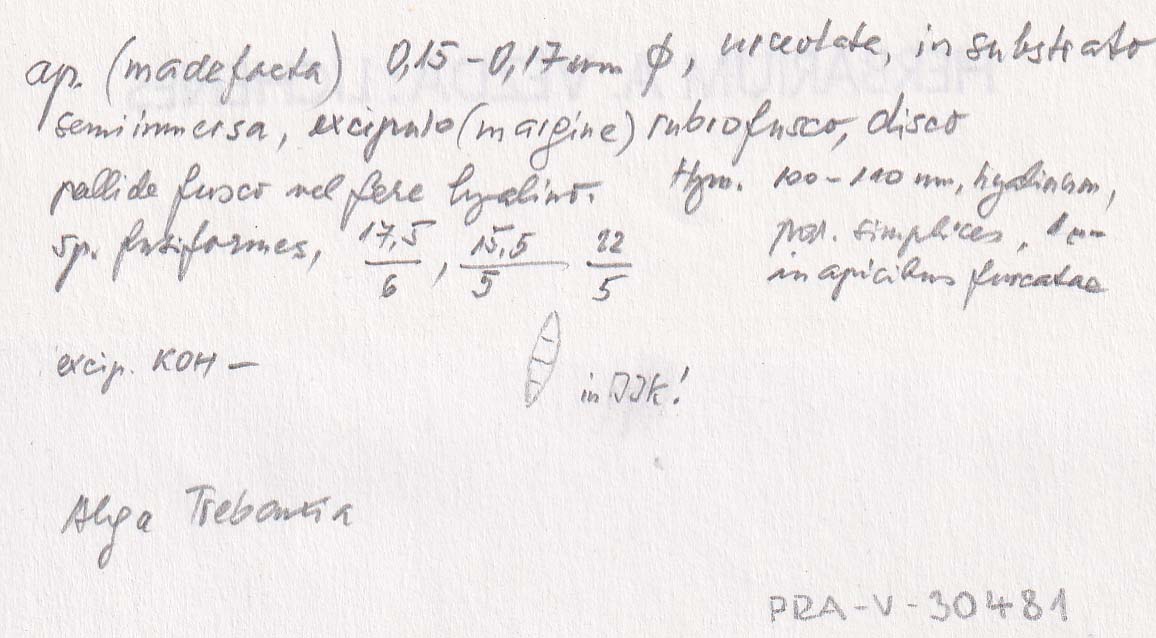 ap. (madefacta) 0,15-0,17 mm ϕ, urceolata, in substrato
semiimmersa, excipulo (margine) rubrofusco, disco
pallide fusco vel fere hyalino. Hym. 100-110 um, hyalinum,
sp. fusiformes, 17,5/6, 15,5/5 22/5 par. simplices, 1 um
in apicibus furcatae
excip. KOH -
in JJK!
Alga Trebouxia
PRA-V-30481